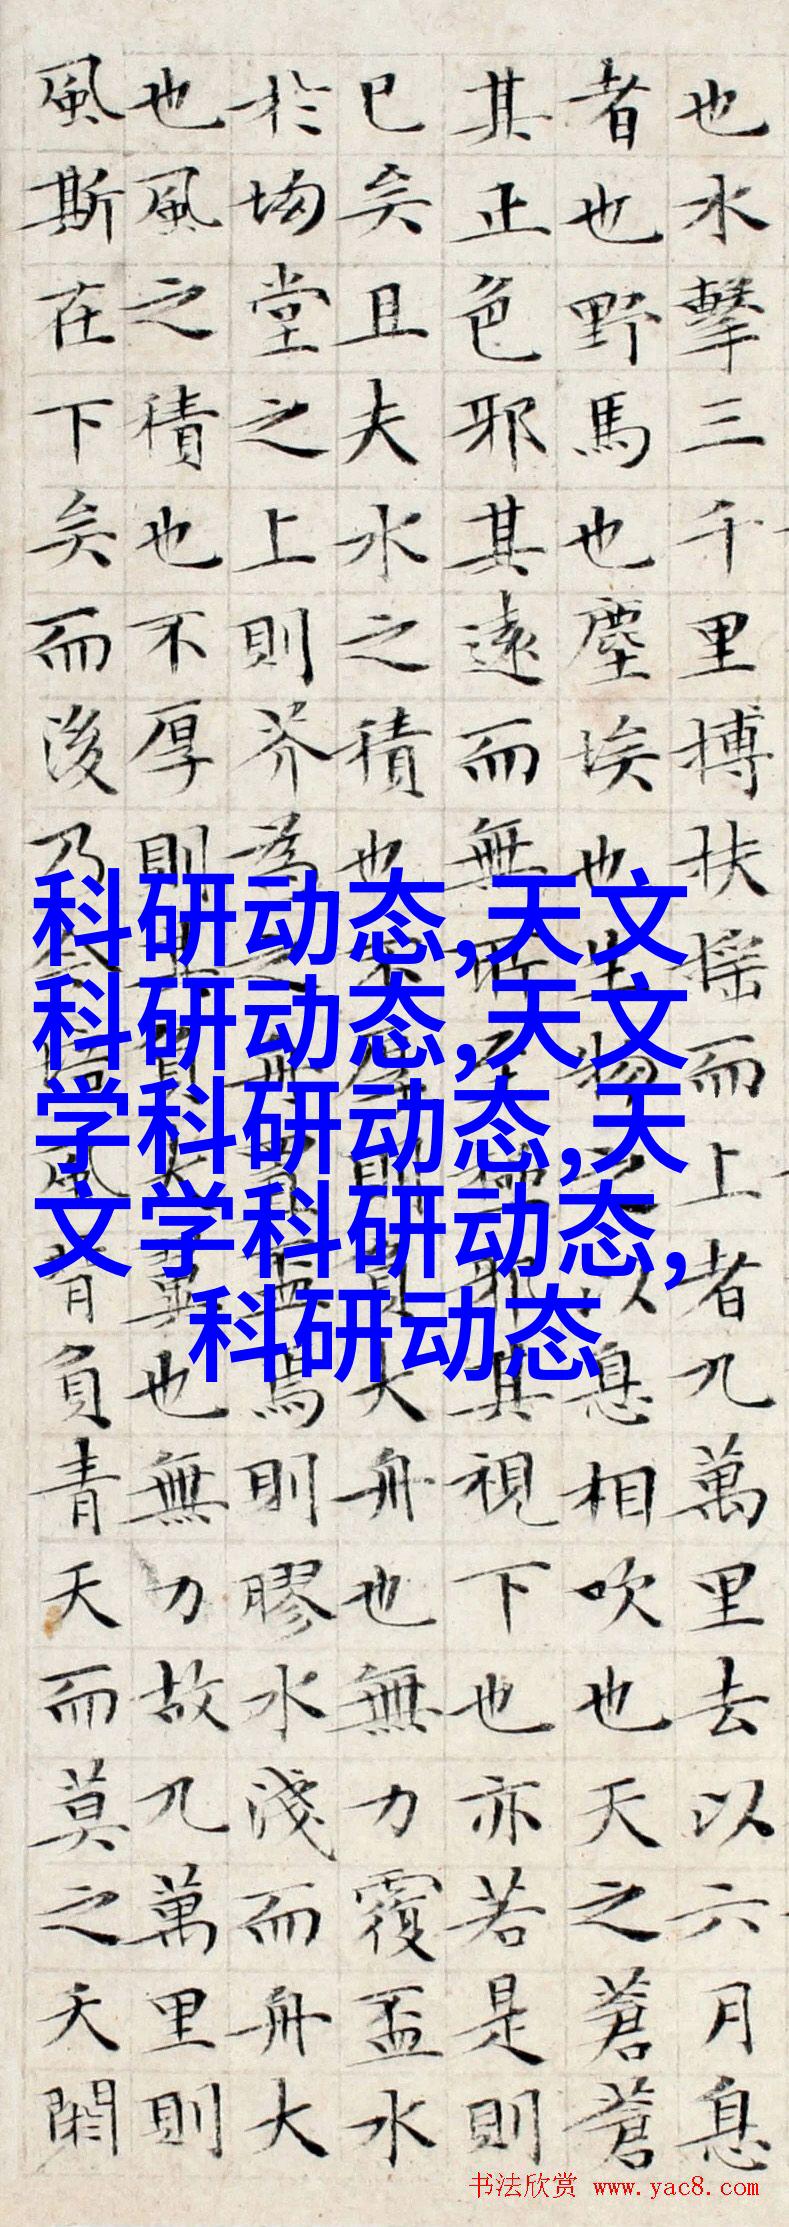 也水擊三千里搏扶摇而上者九萬里去以六月息
者也野馬也塵埃也生物之以息相吹也天之蒼蒼
其正色邪其遠而無所至極邪其視下也亦若是則
已矣且夫水之積也不厚則負大舟也無力覆盃水
於坳堂之上則芥為之舟置盃焉則膠水淺而舟大
也風之積也不厚則其負大翼也無力故九萬里則
風斯在下矣而後乃今培風背負青天而莫之夭閼
科研动态,天文
科研动态,天文
学科研动态,天
文学科研动态,
科研动态
书法欣赏 www.yac8.com